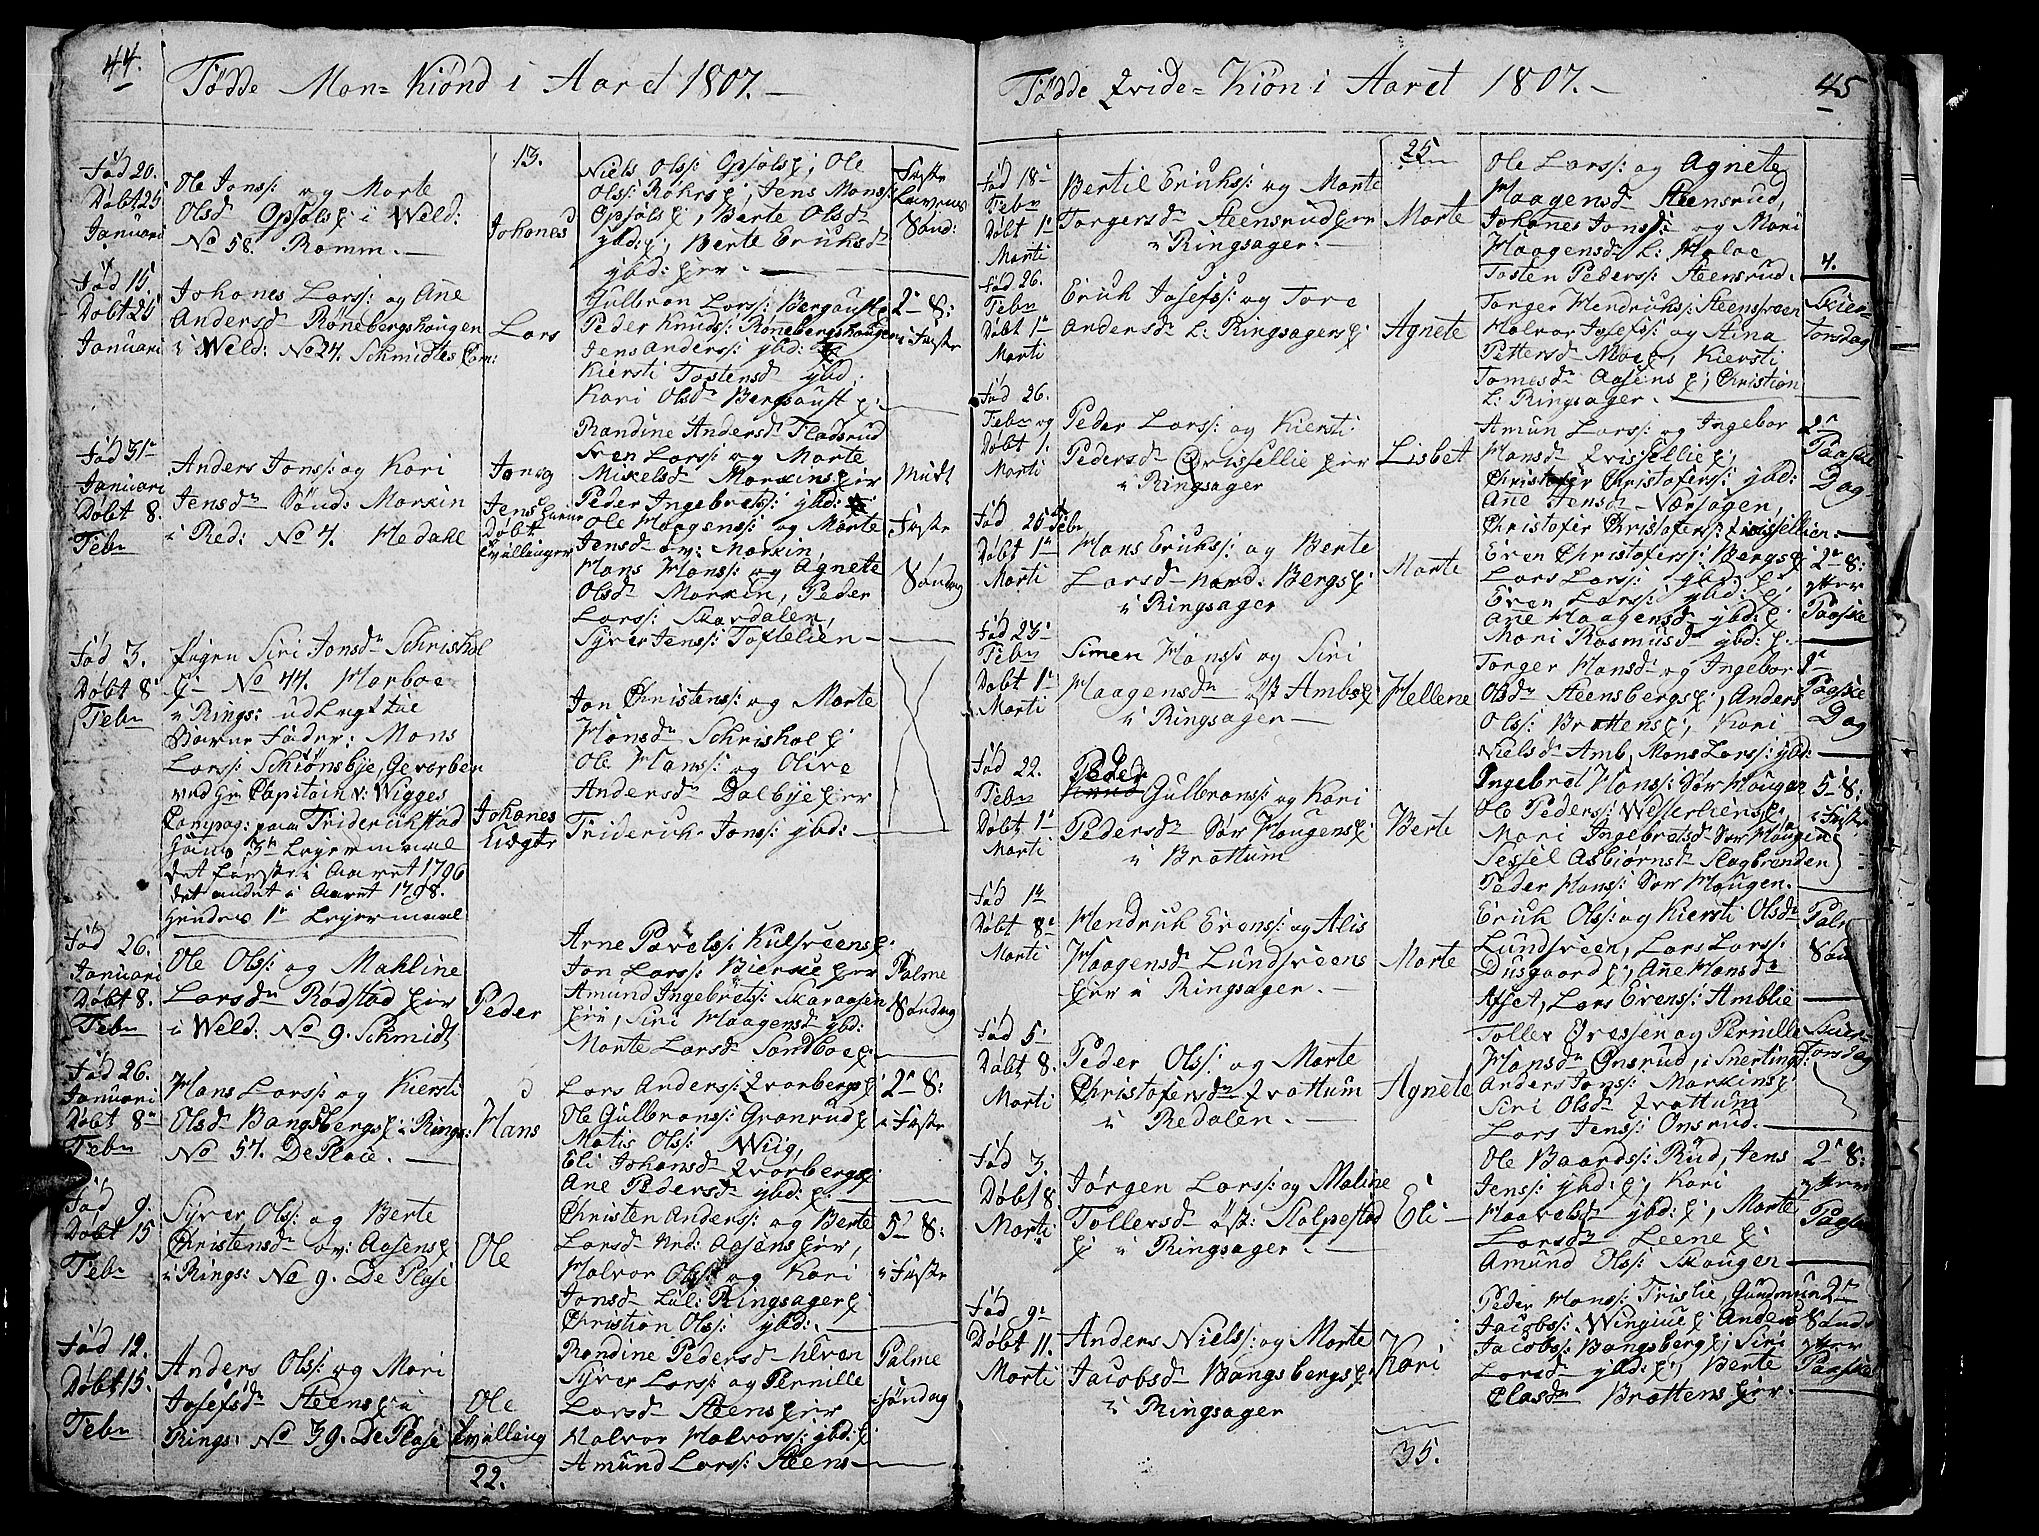 44.
Fødde Man= Kiønd i Aaret 1807. —
13.
Fød 20.
Døbt 25
Januari
Ole Jons: og Marte
Olsd Opsals: i Weld:
No 58. Ramm. —
Johanes
Niels Ols: Opsals; Ole
Ols: Røhrs; Jens Mons:
Opsals, Berte Olsdr
ybd: Berte Eriksdr
ybd:
Faste
Lavens
Sønd:
Fød 15.
Døbt 25
Januari
Johanes Lars: og Ane
Andersdr Rønebergshaugen
i Weld: No 24. Schmidtes Com:
Lars
Gulbran Lars: Bergaust
Peder Knuds: Rønebergshaugen
Jens Anders: ybd:
Kiersti Tostensd ybd
Kari Olsdr Bergaust
2n S:
i Faste
Fød 31te
Januari
Døbt 8.
Febr
Anders Jons: og Kari
Jensdr Sønd: Markin
i Red: No 7. Hedahl
Jon og
Jens
Døbt
tvillinger
Randine Andersdr Fladsrud
Even Lars: og Marte
Mikelsd Markins
Peder Ingebrets: ybd:
Ole Haagens: og Marte
Jensd øv: Markin
Hans Hans: og Agnete
Olsd Markin, Peder
Lars: Skardalen,
Syver Jens: Toftelien —
Midt
Faste
Søndag
Fød 3.
Døbt 8
Febr
Pigen Siri Jonsdr Schrishol
No 44. Marboe
i Rings: udlagt til
Barne Fader: Mons
Lars: Schiønsbye, Gevorben
ved Hr Capitain v: Wigges
Compag: Friderichstad
3de Leyermaal
det første i Aaret 1796
det andet i Aaret 1798.
Hendes 1te Leyermaal
Johanes
Jon Christens: og Marte
Hansdr Schrishol
Ole Hans: og Olive
Andersdr Dalbye
Friderich Jons: ybd: —
Fød 26.
Januari
Døbt 8.
Febr
Ole Ols: og Mahline
Larsdr Rødstad
i Weld: No 9. Schmidt
Peder
Arne Pavels: Kulsveens
Jon Lars: Bierke
Amund Ingebrets: Skaraasen
Siri Haagensd ybd:
Marte Larsd Sandboe
Palme
Søndag
Fød 26.
Januari
Døbt 8
Febr
Hans Lars: og Kiersti
Olsd Bangsbergs: i Rings:
No 57. De Place. —
Hans
Lars Anders: Qvarbergs
Ole Gulbrans: Granrud
Matis Ols: Wiig,
Eli Johansd Qvarbergs
Ane Pedersd ybd:
2n S:
i Faste
Fød 9.
Døbt 15
Febr
Syver Ols: og Berte
Christensdr øv: Aasens
i Rings: No 9. De Plase
Ole
Christen Anders: og Berte
Larsd Ned: Aasens
Halvor Ols: og Kari
Jonsd Lil: Ringsager
Christian Ols: ybd: —
5n S:
i Faste
Fød 12.
Døbt 15.
Febr
Anders Ols: og Mari
Josefsdr Steens
Rings: No 39. De Plase
Ole
tvilling
Randine Pedersd
Syver Lars: og Pernille
Larsd Steens
Halvor Halvors: ybd:
Amund Lars: Steens —
Palme
Søndag
22.
45
Fødde Qvide= Kiøn i Aaret 1807. —
25
Fød 18
Febr
Døbt 1
Marti
Bertil Eriks: og Marte
Torgersd Steensrud
i Ringsager. —
Marte
Ole Lars: og Agnete
Haagensd Steensrud,
Johanes Jons: og Mari
Haagensd L:
Tosten Peders: Steensrud.
4.
Fød 26.
Febr
Døbt 1
Marti
Erik Josefs: og Tore
Andersdr L: Ringsagers
Agnete
Torger Hendriks: Steensveen
Halvor Josefs: og Stina
Pettersd Moe, Kiersti
Tomesd Aasens, Christian
L: Ringsager. —
Skier=
Torsdag
Fød 26.
Febr og
Døbt 1.
Marti
Peder Lars: og Kiersti
Pedersd Qvissellie
i Ringsager
Lisbet
Amun Lars: og Ingebor
Hansd Qvissellie
Christofer Christofers: ybd:
Ane Jensd Værsagen,
Christofer Christofers: Qvissellien. —
2n
Paaske
Dag
Fød 25 Febr
Døbt 1
Marti
Hans Eriks: og Berte
Larsd nord: Bergs
i Ringsager
Marte
Even Christofers: Bergs
Lars Lars: ybd:
Even Lars: ybd:
Ane Haagensd ybd:
Mari Rasmusd ybd:
2n S:
efter
Paaske
Fød 23
Febr
Døbt 1
Marti
Simen Hans: og Siri
Haagensdr øst Ambs
i Ringsager —
Hellene
Torger Hansd og Ingebor
Olsd Steensbergs, Anders
Ols: Brattens, Kari
Nielsd Amb, Mons Lars: ybd:
2n
Paaske
Dag
Fød 22.
Febr
Døbt 1
Marti
Peder
Gulbrans: og Kari
Pedersd Sør Haugens
i Brøttum
Berte
Ingebret Hans: Sør Haugen
Ole Peders: Westerhens
Mari Ingebretsd Sør Haugen
Sessel Asbiørnsd Slagbrenden
Peder Hans: Sør Haugen. —
5n S:
i Faste
Fød 1te
Døbt 8
Marti
Hendrik Evens: og Alis
Haagensd Lundsveens
i Ringsager. —
Marte
Erik Ols: og Kiersti Olsd
Lundsveen, Lars Lars:
Dusgaard, Ane Hansd
Afset, Lars Evens: Amblie
Palm
Sønd
Fød 5
Døbt 8.
Marti
Peder Ols: og Marte
Christofersdr Qvattum
i Redalen. —
Agnete
Toller Evessen og Pernille
Hansdr Onsrud, i Snertingd:
Anders Jons: Markins
Siri Olsd Qvattum
Lars Jens: Onsrud. —
Skier=
Torsdag
Fød 3.
Døbt 8
Marti
Jørgen Lars: og Maline
Tollersd øst: Stolpestad
i Ringsager. —
Eli —
Ole Baards: Rud, Jens
Jens: ybd: Kari
Haavelsd ybd:, Marte
Larsdr Leene
Amund Ols: Skougen —
2n S:
efter
Paaske
Fød 9
Døbt 11.
Marti
Anders Niels: og Marte
Jacobsd Bangsbergs
i Ringsager
Kari
Peder Hans: Fristie, Gudmun
Jacobs: Wingiue, Anders
Jacobs: Bangsberg; Siri
Larsd ybd:, Berte
Clasdr Brattens
2n
Sønd:
efter
Paaske
35.